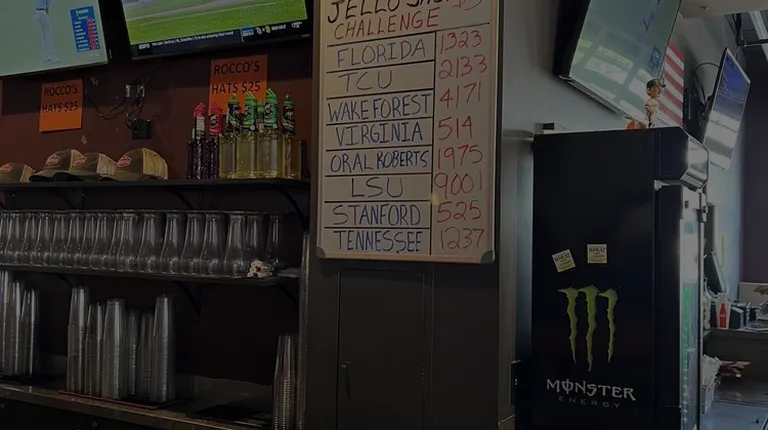 JELLO SHOT $5
CHALLENGE
FLORIDA 1323
TCU 2133
WAKE FOREST 4171
VIRGINIA 514
ORAL ROBERTS 1975
LSU 9001
STANFORD 525
TENNESSEE 1237
ROCCO'S
HATS $25
ROCCO'S
HATS $25
MONSTER
ENERGY